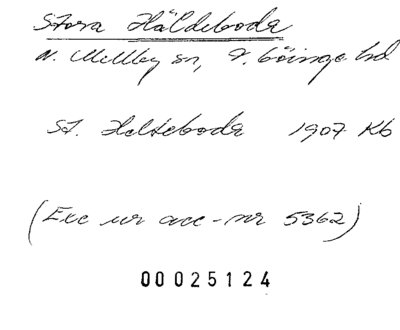 Stora Häldeboda
N. Mellby sn, V. Göinge hd
St. Helseboda 1907 Kb
(Exc ur acc-nr 5362)
00025124